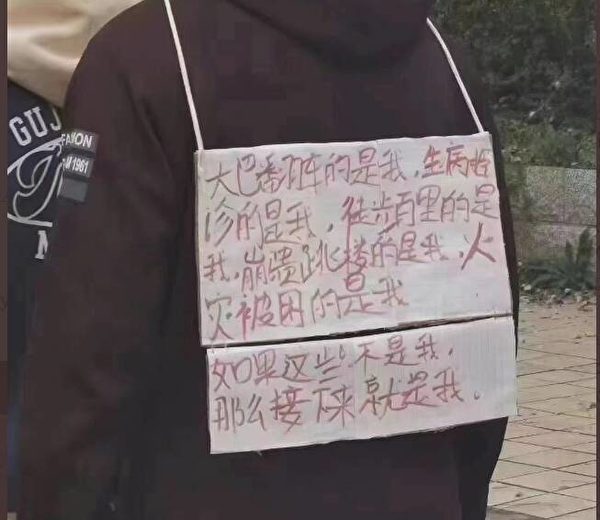 大巴翻车的是我，生病拒
诊的是我，徒步百里的是
我，崩溃跳楼的是我，火
灾被困的是我
如果这些不是我，
那么接下来就是我。
GUJ
M
1961